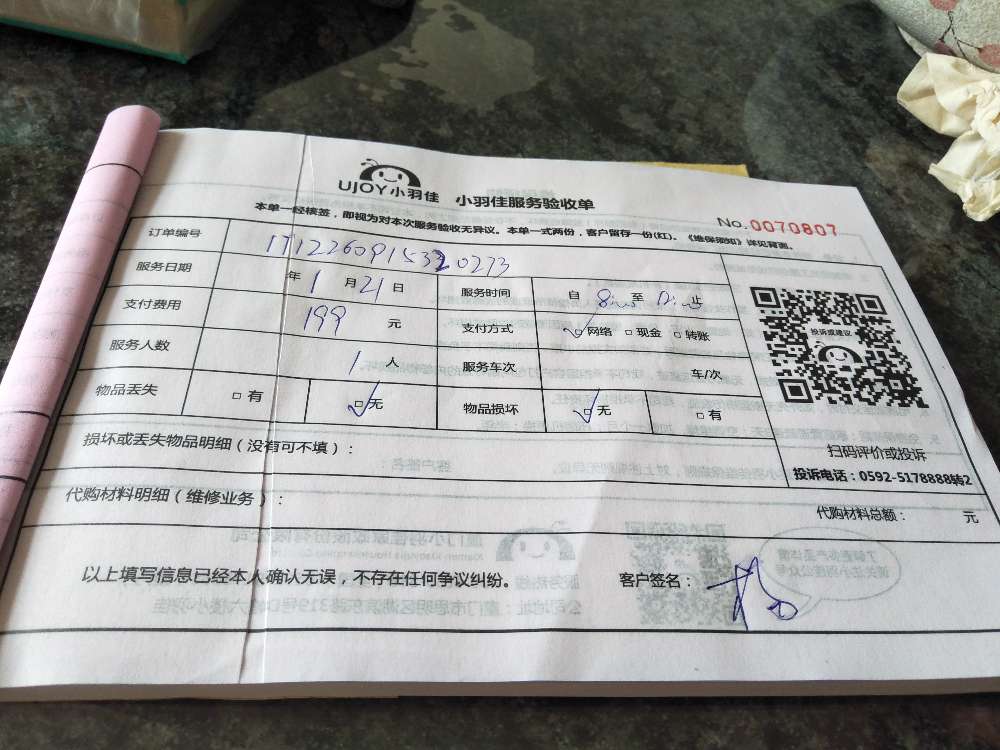 UJOY小羽佳 小羽佳服务验收单
No.0070807
本单一经核签,即视为对本次服务验收无异议。本单一式两份,客户留存一份(红)。《维保须知》详见背面。
订单编号
服务日期 年 1 月 21 日 服务时间 自 至 止
支付费用 199 元 支付方式 网络 现金 转账
服务人数 1 人 服务车次 车/次
物品丢失 有 无 物品损坏 无 有
投诉或建议
扫码评价或投诉
投诉电话:0592-5178888转2
损坏或丢失物品明细(没有可不填):
代购材料明细(维修业务): 代购材料总额: 元
以上填写信息已经本人确认无误,不存在任何争议纠纷。 客户签名: